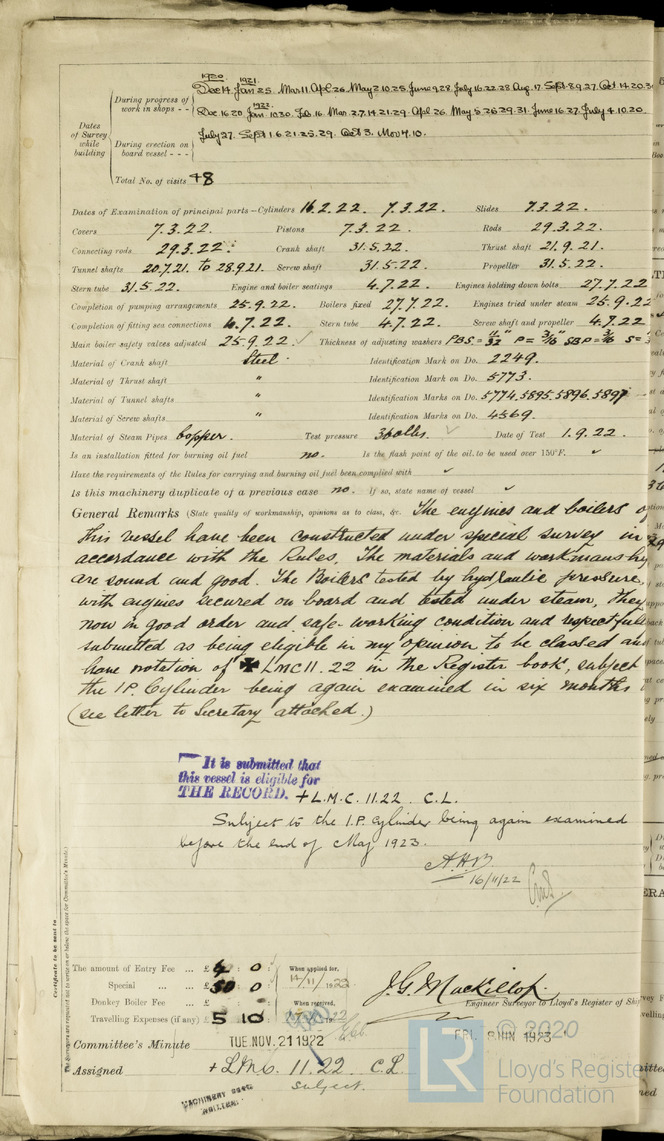 1920 1921
Dec 14. Jan 25. Mar 11. Apl 26. May 2.10.25. June 9.28. July 16.22.28 Aug. 17. Sept. 8.9.27. Oct 14.20.3
During progress of work in shops - -
1922
Dec 16 20. Jan. 10.30. Feb. 16. Mar. 2.7.14.21.29. Apl 26. May 5.26.29.31. June 16.27. July 4.10.20.
Dates of Survey while building
During erection on board vessel - - -
July 27. Sept 1.6.21.25.29. Oct 3. Nov 7.10.
Total No. of visits 48
Dates of Examination of principal parts—Cylinders 16.2.22. 7.3.22. Slides 7.3.22.
Covers 7.3.22. Pistons 7.3.22. Rods 29.3.22.
Connecting rods 29.3.22. Crank shaft 31.5.22. Thrust shaft 21.9.21.
Tunnel shafts 20.7.21. to 28.9.21. Screw shaft 31.5.22. Propeller 31.5.22.
Stern tube 31.5.22. Engine and boiler seatings 4.7.22. Engines holding down bolts 27.7.22
Completion of pumping arrangements 25.9.22. Boilers fixed 27.7.22. Engines tried under steam 25.9.22
Completion of fitting sea connections 4.7.22. Stern tube 4.7.22. Screw shaft and propeller 4.7.22
Main boiler safety valves adjusted 25.9.22 ✓ Thickness of adjusting washers
Material of Crank shaft Steel. Identification Mark on Do. 2249.
Material of Thrust shaft " Identification Mark on Do. 5773.
Material of Tunnel shafts " Identification Marks on Do. 5774.5895.5896.5897
Material of Screw shafts " Identification Marks on Do. 4569.
Material of Steam Pipes Copper. Test pressure ✓ Date of Test 1.9.22.
Is an installation fitted for burning oil fuel no. Is the flash point of the oil to be used over 150°F. ✓
Have the requirements of the Rules for carrying and burning oil fuel been complied with ✓
Is this machinery duplicate of a previous case no. If so, state name of vessel ✓
General Remarks (State quality of workmanship, opinions as to class, &c. The engines and boilers of
this vessel have been constructed under special survey in
accordance with the Rules. The materials and workmanship
are sound and good. The Boilers tested by hydraulic pressure,
with engines secured on board and tested under steam, they
now in good order and safe working condition and respectfully
submitted as being eligible in my opinion to be classed and
have notation of ✠ LMC 11.22 in the Register book, subject
the I.P. Cylinder being again examined in six months
(see letter to Secretary attached.)
It is submitted that
this vessel is eligible for
THE RECORD. + L.M.C. 11.22. C.L.
Subject to the I.P. Cylinder being again examined
before the end of May 1923.
16/11/22
Certificate to be sent to
The amount of Entry Fee ... £ 4 : 0 : When applied for,
Special ... £ 50 : 0 : 14/11/1922
Donkey Boiler Fee ... £ : : When received,
Travelling Expenses (if any) £ 5 : 10 :
J.G. Mackillop.
Engineer Surveyor to Lloyd's Register of Ship
Committee's Minute TUE. NOV. 21 1922 FRI. 8 JUN 1923
Assigned + LMC. 11.22 C.L.
subject.
MACHINERY CERT.
WRITTEN.
LR © 2020
Lloyd's Register
Foundation